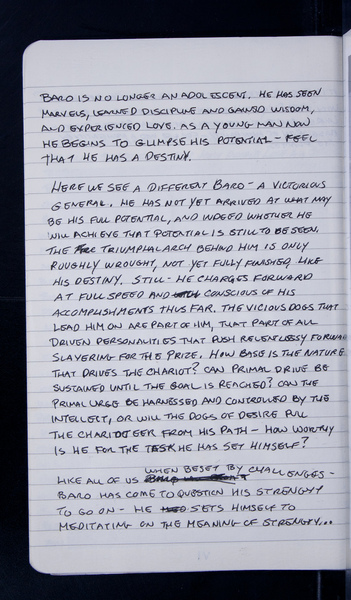 BARO IS NO LONGER AN ADOLESCENT. HE HAS SEEN
MARVELS, LEARNED DISCIPLINE AND GAINED WISDOM,
AND EXPERIENCED LOVE. AS A YOUNG MAN NOW
HE BEGINS TO GLIMPSE HIS POTENTIAL - FEEL
THAT HE HAS A DESTINY.
HERE WE SEE A DIFFERENT BARO - A VICTORIOUS
GENERAL. HE HAS NOT YET ARRIVED AT WHAT MAY
BE HIS FULL POTENTIAL, AND INDEED WHETHER HE
WILL ACHIEVE THAT POTENTIAL IS STILL TO BE SEEN.
THE TRIUMPHAL ARCH BEHIND HIM IS ONLY
ROUGHLY WROUGHT, NOT YET FULLY FINISHED, LIKE
HIS DESTINY. STILL - HE CHARGES FORWARD
AT FULL SPEED AND CONSCIOUS OF HIS
ACCOMPLISHMENTS THUS FAR. THE VICIOUS DOGS THAT
LEAD HIM ON ARE PART OF HIM, THAT PART OF ALL
DRIVEN PERSONALITIES THAT PUSH RELENTLESSY FORWARD
SLAVERING FOR THE PRIZE. HOW BASE IS THE NATURE
THAT DRIVES THE CHARIOT? CAN PRIMAL DRIVE BE
SUSTAINED UNTIL THE GOAL IS REACHED? CAN THE
PRIMAL URGE BE HARNESSED AND CONTROLLED BY THE
INTELLECT, OR WILL THE DOGS OF DESIRE PULL
THE CHARIOTEER FROM HIS PATH - HOW WORTHY
IS HE FOR THE TASK HE HAS SET HIMSELF?
LIKE ALL OF US WHEN BESET BY CHALLENGES -
BARO HAS COME TO QUESTION HIS STRENGTH
TO GO ON - HE SETS HIMSELF TO
MEDITATING ON THE MEANING OF STRENGTH...